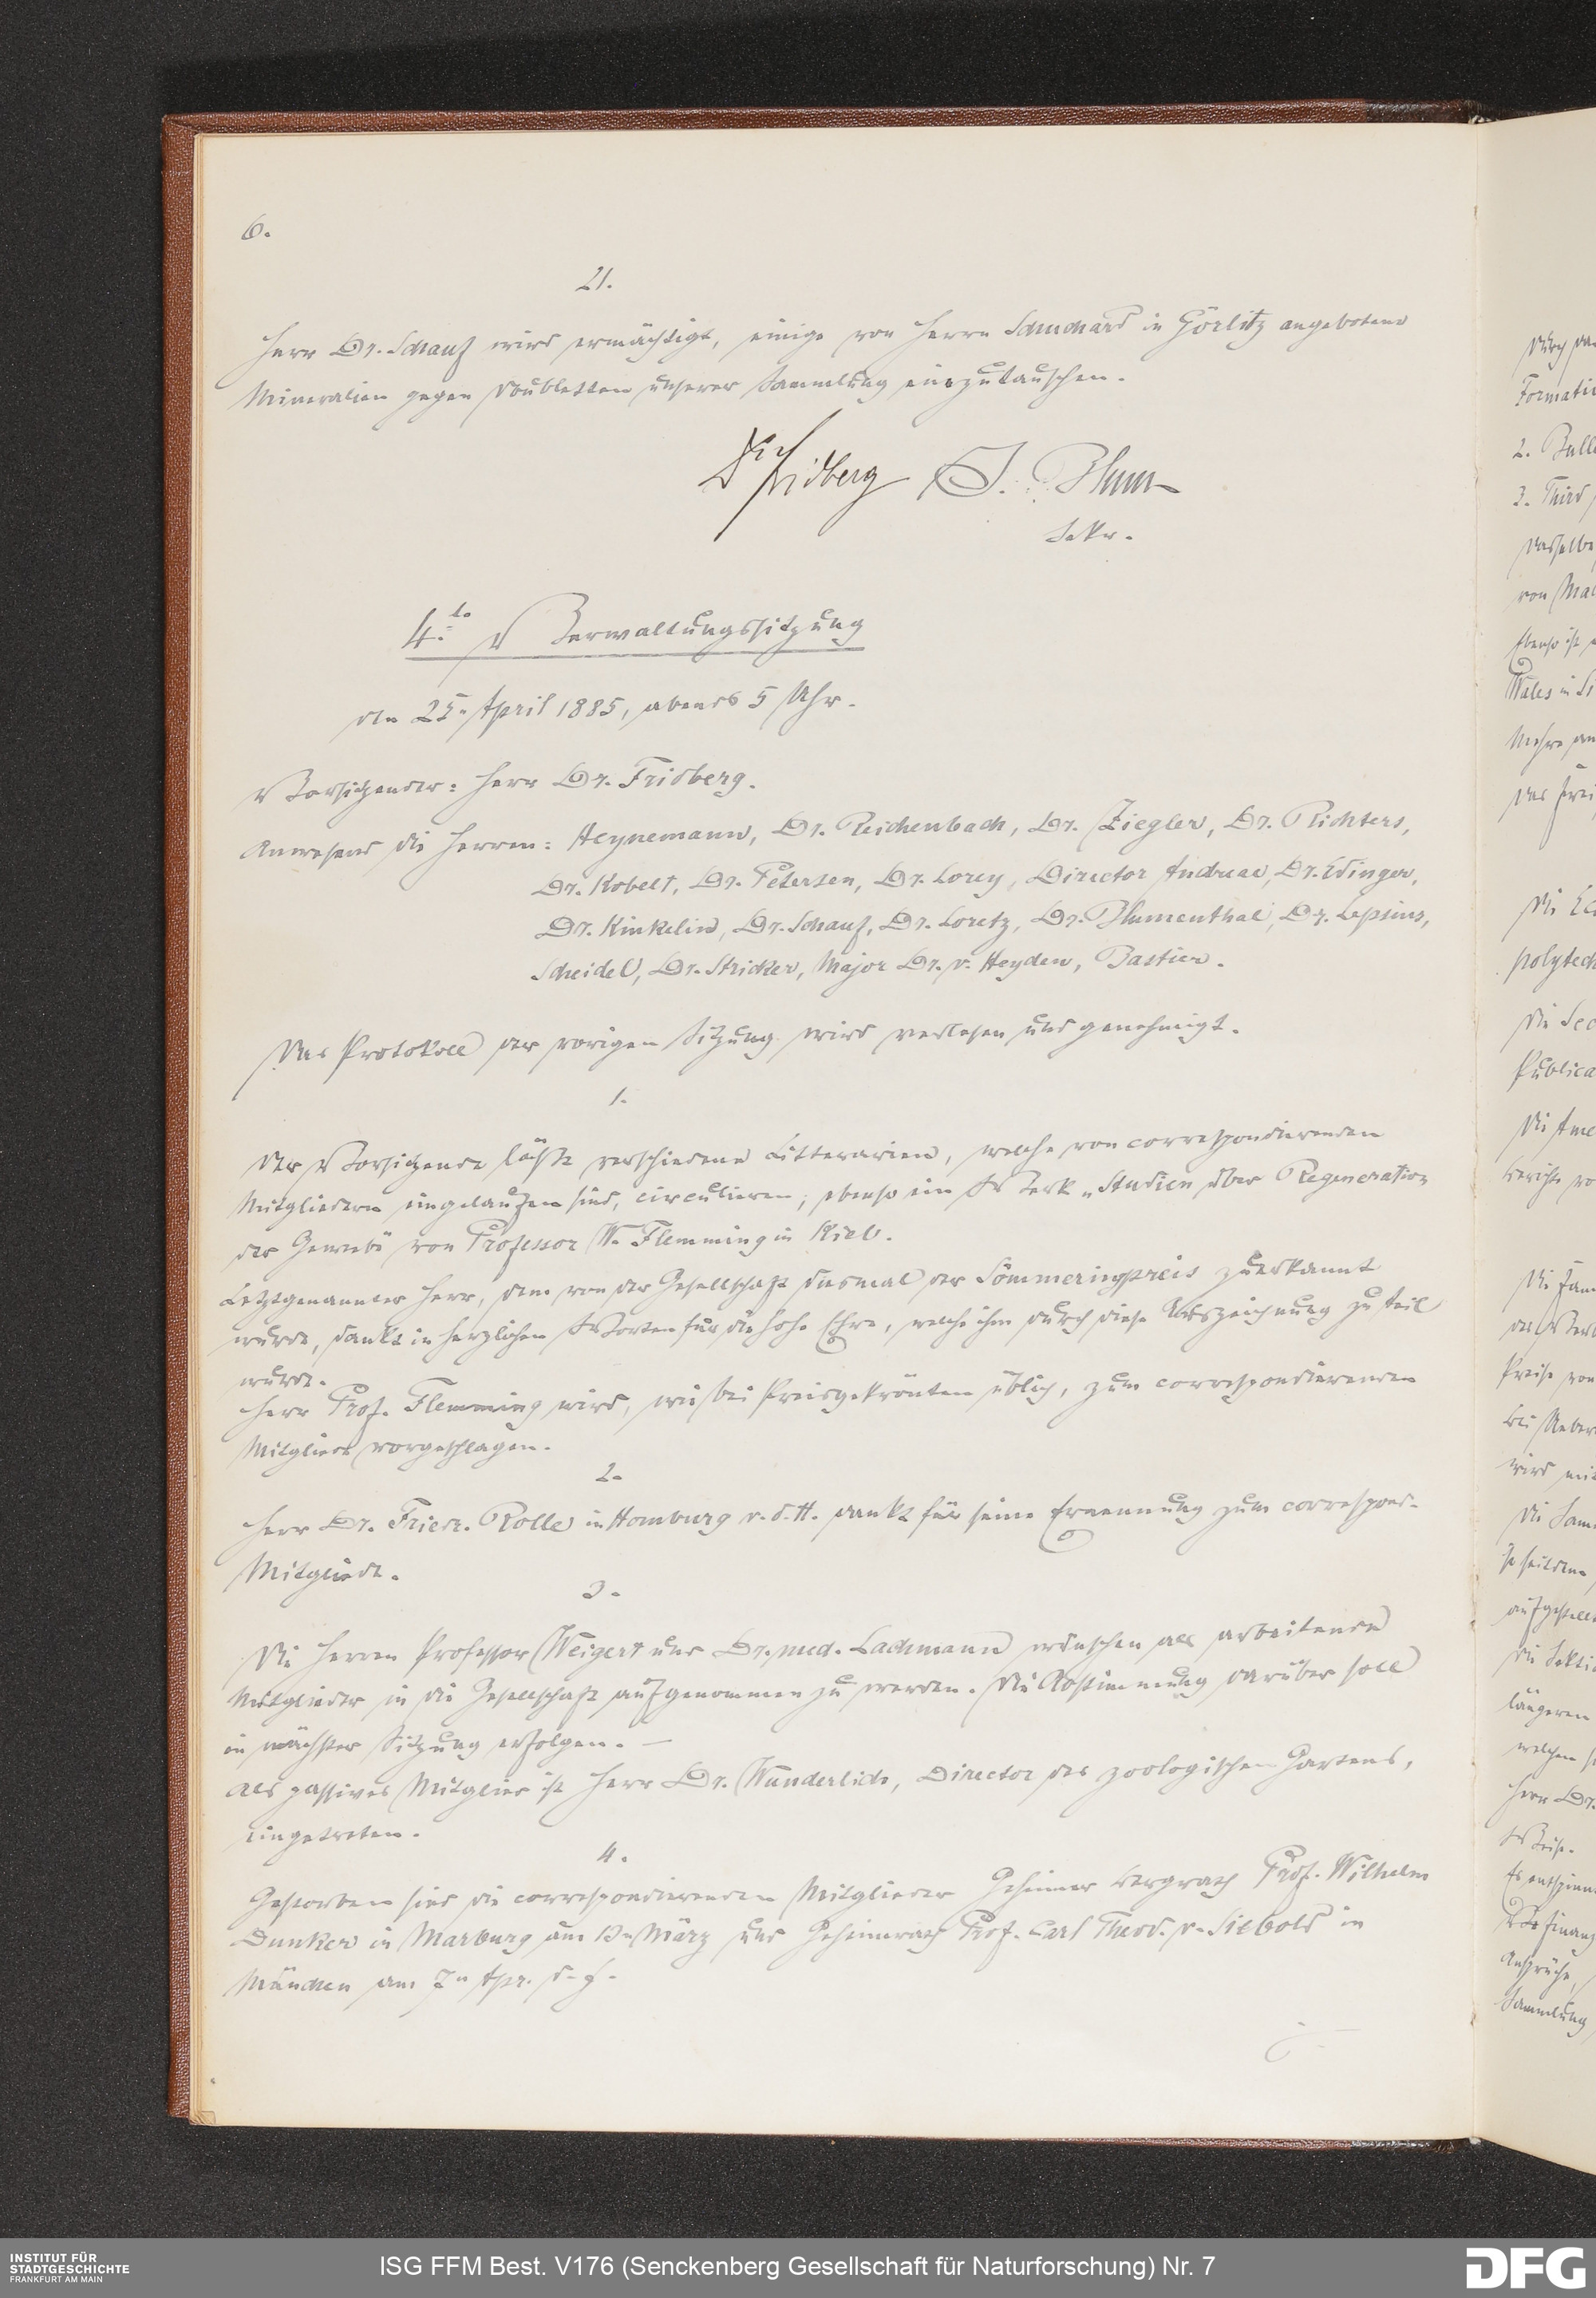 6.
21.
Herr Dr. Schauf wird ermächtigt, einige von Herrn Schuchard in Görlitz angebotene
Mineralien gegen Doubletten unserer Sammlung einzutauschen.
Dr Fridberg J. Blum
Sekr.
4.te Verwaltungssitzung
den 25n April 1885, abends 5 Uhr.
Vorsitzender: Herr Dr. Fridberg.
Anwesend die Herren: Heynemann, Dr. Reichenbach, Dr. Ziegler, Dr. Richters,
Dr. Kobelt, Dr. Petersen, Dr. Lorey, Director Andreae, Dr. Edinger,
Dr. Kinkelin, Dr. Schauf, Dr. Loretz, Dr. Blumenthal, Dr. Lepsius,
Scheidel, Dr. Stricker, Major Dr. v. Heyden, Bastier.
Das Protokoll der vorigen Sitzung wird verlesen und genehmigt.
1.
Der Vorsitzende läßt verschiedene Litterarien, welche von correspondierenden
Mitgliedern eingelaufen sind, circulieren; ebenso ein Werk „Studien über Regeneration
der Gewebe von Professor W. Flemming in Kiel.
Letztgenannter Herr, dem von der Gesellschaft diesmal der Sömmeringpreis zuerkannt
wurde, dankt in herzlichen Worten für die hohe Ehre, welche ihm durch diese Auszeichnung zu teil
wurde.
Herr Prof. Flemming wird, wie bei Preisgekrönten üblich, zum correspondierenden
Mitgliede vorgeschlagen.
2.
Herr Dr. Friedr. Rolle in Homburg v. d. H. dankt für seine Ernennung zum correspond.
Mitgliede.
3.
Die Herren Professor Weigert und Dr. med. Lachmann wünschen als arbeitende
Mitglieder in die Gesellschaft aufgenommen zu werden. Die Abstimmung darüber soll
in nächster Sitzung erfolgen. —
Als passives Mitglied ist Herr Dr. Wunderlich, Director des zoologischen Gartens,
eingetreten.
4.
Gestorben sind die correspondierenden Mitglieder Geheimer Bergrath Prof. Wilhelm
Dunker in Marburg am 13n März und Geheimrath Prof. Carl Theod. v. Siebold in
München am 7n Apr. d. J.
Formati
2. Bull
3. Third
Dasselbe
von Mal
Ebenso ist
Wales in
polytech
Publica
Preise von
wird mit
aufgestell
längeren
welchem
Herr Dr.
Weise.
Ansprüche,
Sammlung
INSTITUT FÜR
STADTGESCHICHTE
FRANKFURT AM MAIN
ISG FFM Best. V176 (Senckenberg Gesellschaft für Naturforschung) Nr. 7
DFG